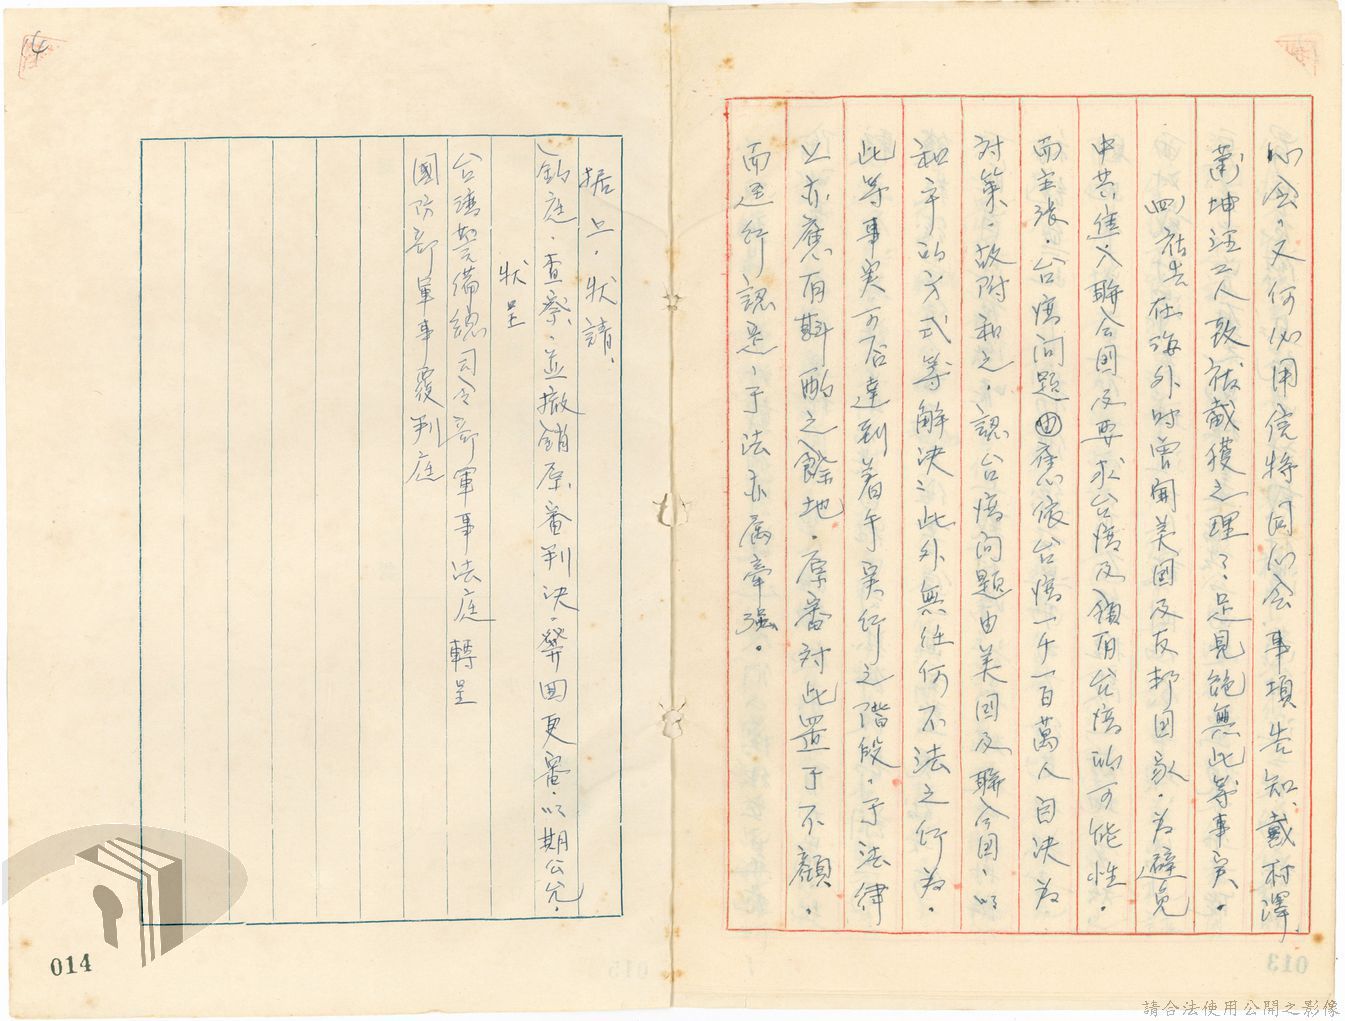 心会，又何必用信特问心会事項告知、戴村澤、
蕭坤注二人致被截獲之理？足見絕無此等事實。
四）祜去在海外时曾聞美国及友邦国家，為避免
中共進入聯合国及要求台湾及領有台湾的可能性，
而主張，台湾问題由應依台湾一千一百萬人自决為
对策，故附和之，認台湾问題由美国及聯合国，以
和平的方式等解决；此外無任何不法之行為，
此等事実可否達到着手実行之階段，于法律
上亦應有斟酌之餘地，原審对此置于不顧，
而逕行認定，于法亦属牽强。
據上，狀請，
鈞庭，查察，並撤銷原審判决，發回更審，以期公允，
狀呈
台湾警備總司令部軍事法庭 轉呈
國防部軍事覆判庭
14
014
013
015
請合法使用公開之影像